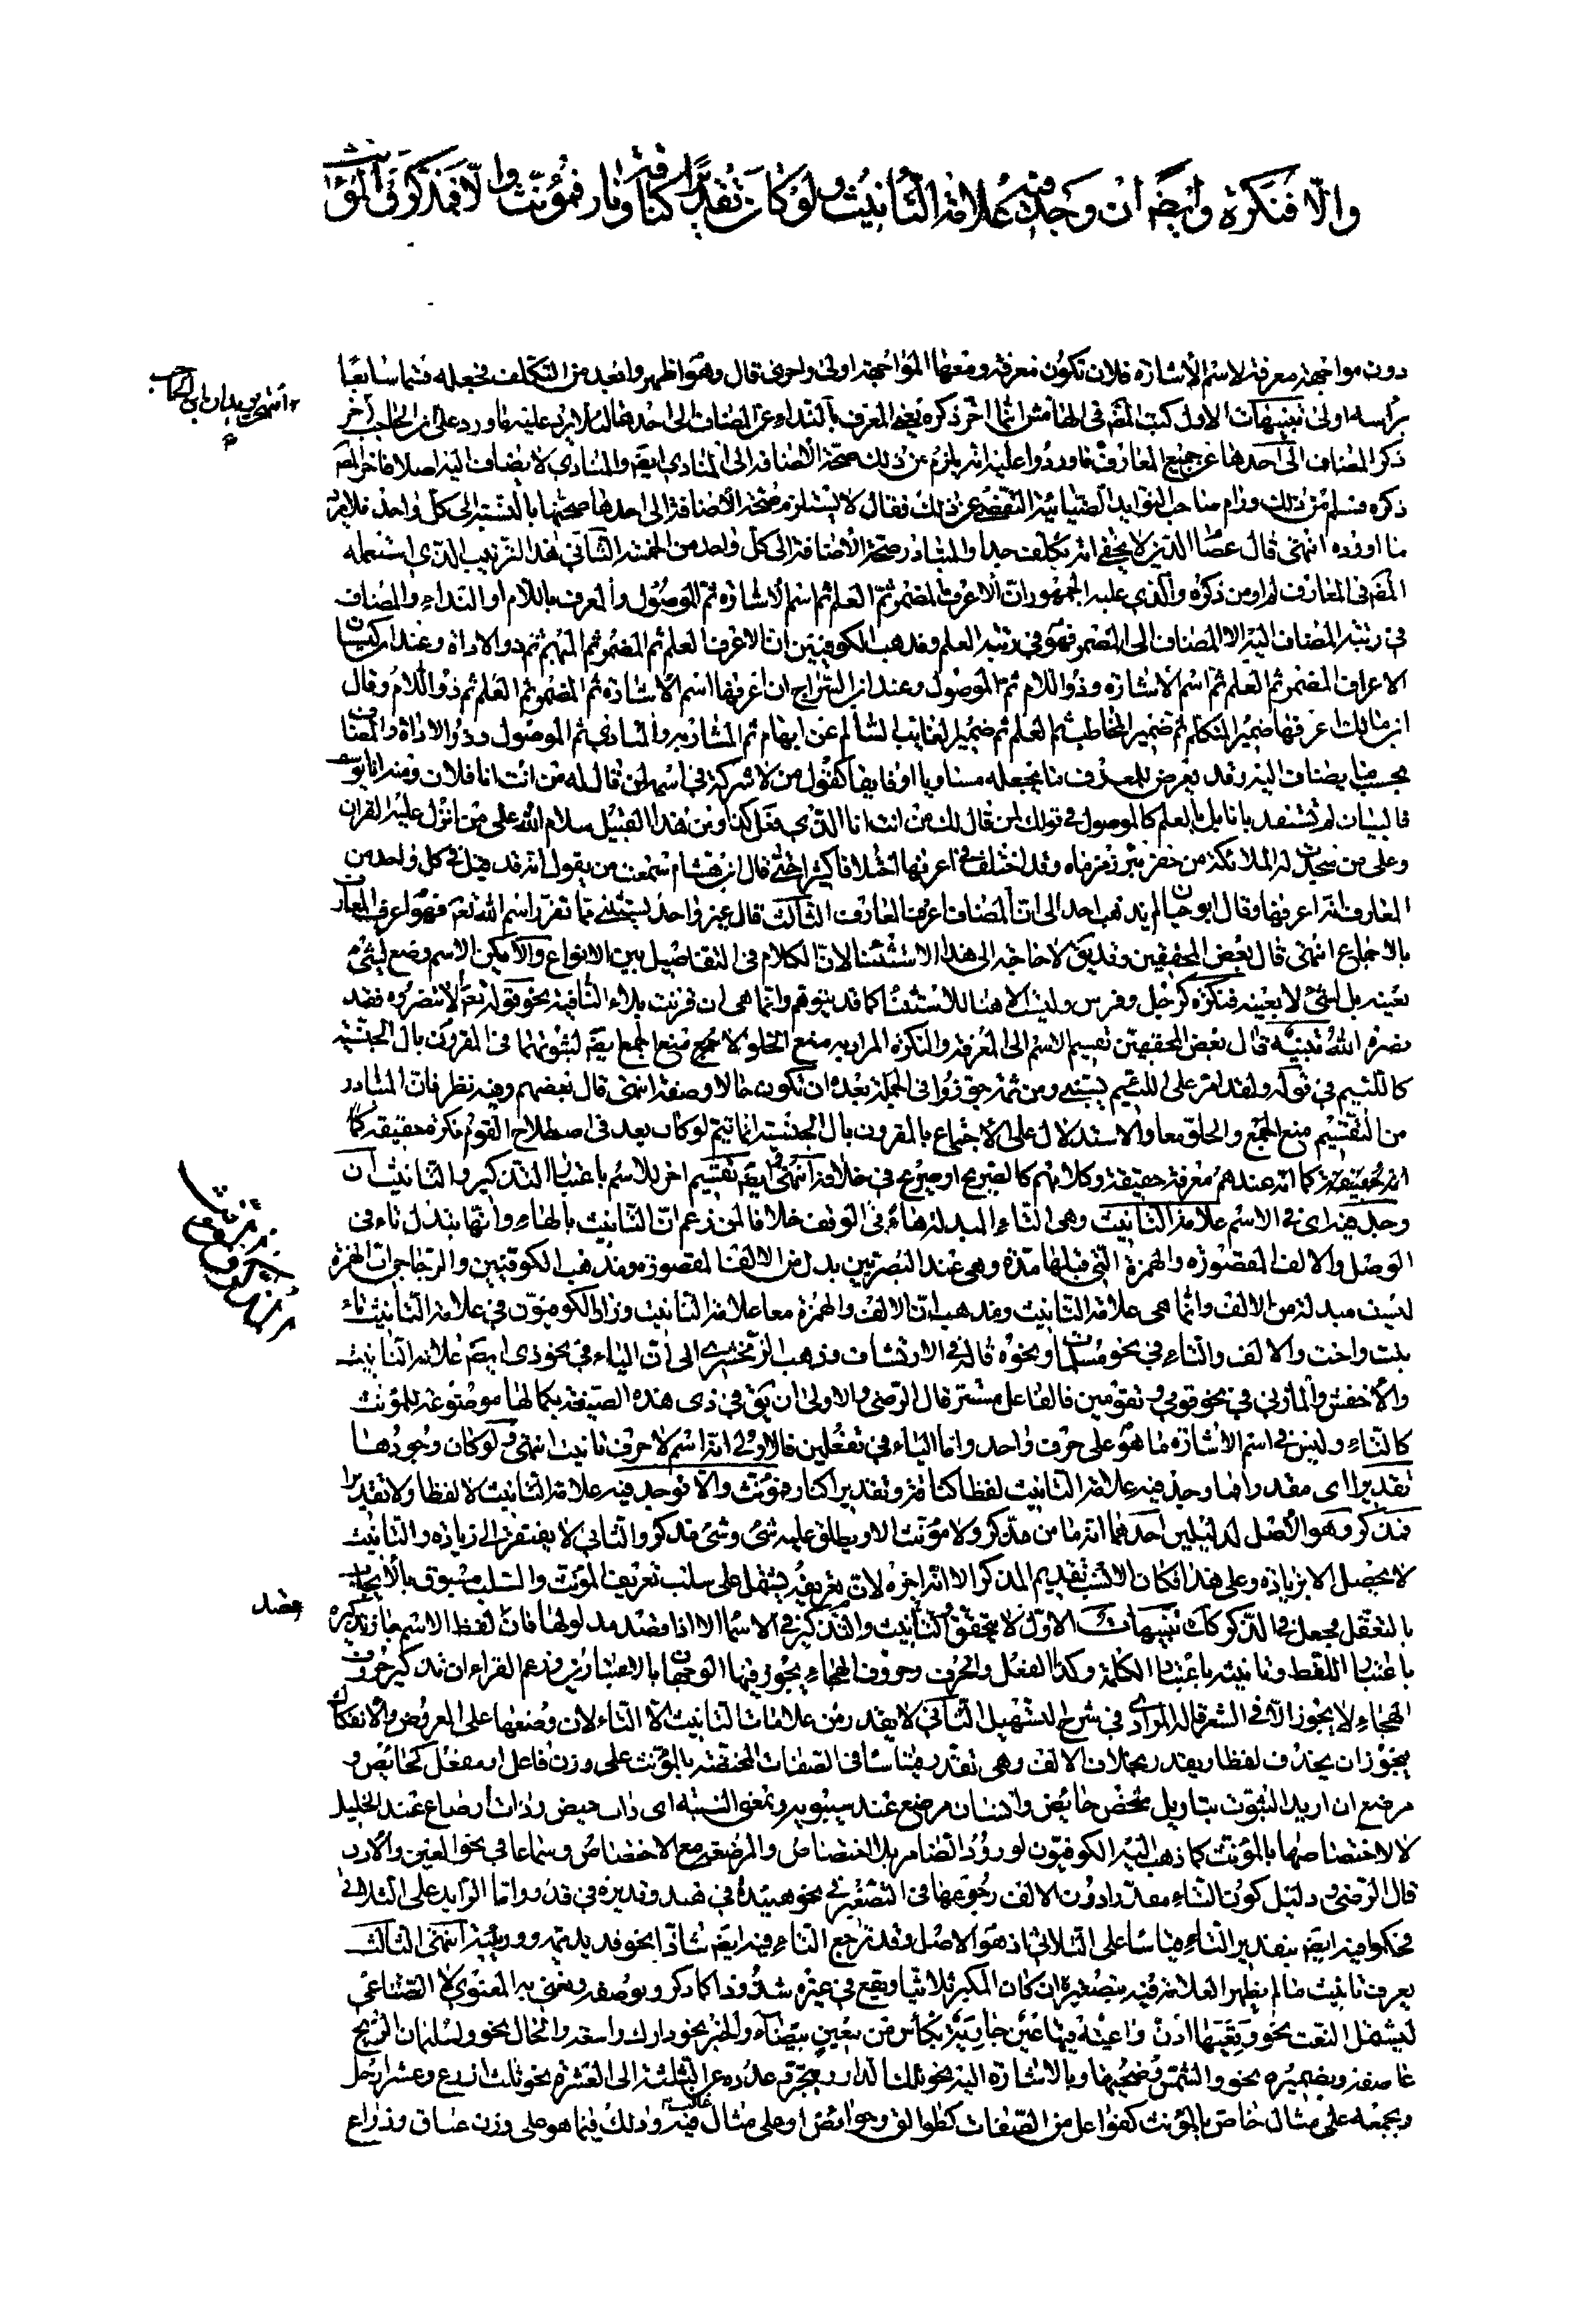 والّا فنكرة وايضًا ان وجد فيه علامة التّأنيث ولو كان تقديرًا كناقة ونار فمؤنّث والّا فمذكر والمؤنث
دون مواجهة معرفة لاسم الأشارة فلان تكون معرفة ومعها المواجهة اولى واحرى قال وهو اظهر وابعد من التكلف فجعله قسما سابعًا
برأسه اولى تنبيهات الاول كتب المص في الهامش انما اخّر ذكره يعني المعرف بالنداء عن المضاف الى احدها لئلا يرد عليه ما ورد على ابن الحاجب اخر
ذكر المضاف الى احدها عن جميع المعارف فاوردوا عليه انه يلزم من ذلك صحة الأضافة الى المنادى ايضا والمنادى لا يضاف اليه اصلا فاخر المص
ذكره فسلم من ذلك ورام صاحب الفوايد الضيائية التفصي عن ذلك فقال لا يستلزم صحة الأضافة الى احدها صحتها بالنسبة الى كل واحد فلا يرد
ما اورده انتهى قال عصام الدين لا يخفى انه تكلف جدا والمتبادر صحة الأضافة الى كل واحد من الخمسة الثاني هذا الترتيب الذي استعمله
المص في المعارف لم ار من ذكره والذي عليه الجمهور ان الاعرف المضمر ثم العلم ثم اسم الأشارة ثم الموصول والمعرف باللام او النداء والمضاف
في رتبة المضاف اليه الا المضاف الى المضمر فهو في رتبة العلم ومذهب الكوفيين ان الاعرف العلم ثم المضمر ثم المبهم ثم ذو الاداة وعند ابن كيسان
الاعرف المضمر ثم العلم ثم اسم الأشارة وذو اللام ثم الموصول وعند ابن السراج ان اعرفها اسم الأشارة ثم المضمر ثم العلم ثم ذو اللام وقال
ابن مالك اعرفها ضمير المتكلم ثم ضمير المخاطب ثم العلم ثم ضمير الغايب السالم عن ابهام ثم المشار به والمنادى ثم الموصول وذو الاداة والمضاف
بحسب ما يضاف اليه وقد يعرض للمعرف ما يجعله مساويا او فايقا كقول من لا شركة في اسمه لمن قال له من انت انا فلان ومنه انا يوسف
فالبيان لم يستفد بانا بل بالعلم كالموصول في قولك لمن قال لك من انت انا الذي فعل كذا ومن هذا القبيل سلام الله على من انزل عليه القران
وعلى من سجدت له الملائكة من حفر بئر زمزماه وقد اختلف في اعرفها اختلافا كثيرا حتى قال ابن هشام سمعت من يقول انه قد قيل في كل واحد من
المعارف انه اعرفها وقال ابو حيان لم يذهب احد الى ان المضاف اعرف المعارف الثالث قال غير واحد يستثنى مما تقرر اسم الله تعم فهو اعرف المعارف
بالاجماع انتهى قال بعض المحققين وقد يق لا حاجة الى هذا الاستثنا لان الكلام في التفاصيل بين الانواع والا يكن الاسم وضع لشئ
بعينه بل لشئ لا بعينه فنكرة كرجل وفرس وليست الا هنا للاستثنا كما قد يتوهم وانما هي ان قرنت بلاء النافية نحو قوله تعم الا تنصروه فقد
نصره الله تنبيه قال بعض المحققين تقسيم الاسم الى المعرفة والنكرة المراد به منع الخلو لا منع الجمع لثبوتهما في المقرون بال الجنسية
كاللئيم في قوله ولقد امر على اللئيم يسبني ومن ثمة جوزوا في الجملة بعده ان تكون حالا وصفة انتهى قال بعضهم وفيه نظر فان المتبادر
من التقسيم منع الجمع والخلو معا والاستدلال على الأجتماع بالمقرون بال الجنسية انما يتم لو كان يعد في اصطلاح القوم نكرة حقيقة كما
انه عندهم معرفة حقيقة وكلامهم كالصريح او صريح في خلافه انتهى وايضا تقسيم اخر للاسم باعتبار التذكير والتأنيث ان
وجد فيه اي في الاسم علامة التانيث وهي التاء المبدلة هاء في الوقف خلافا لمن زعم ان التانيث بالهاء وانها تبدل تاء في
الوصل والالف المقصورة والهمزة التي قبلها مدة وهي عند البصريين بدل من الالف المقصورة ومذهب الكوفيين والزجاجي ان الهمزة
ليست مبدلة من الالف وانما هي علامة التانيث ومذهب ان الالف والهمزة معا علامة التانيث وزاد الكوفيون في علامة التانيث تاء
بنت واخت والالف والتاء في نحو مسلمات ونحوه قاله في الارتشاف وذهب الزمخشري الى ان الياء في نحو ذي ايضا علامة التانيث
والأخفش والمازني في نحو قومي وتقومين فالفاعل مستتر قال الرضي والاولى ان يق في ذي هذه الصيغة بكمالها موضوعة للمؤنث
كالتاء وليس في اسم الأشارة ما هو على حرف واحد واما الياء في تفعلين فالاولى انه اسم لا حرف تانيث انتهى ولو كان وجودها
تقديرا اي مقدرا فما وجد فيه علامة التانيث لفظا كناقة وتقديرا كنار فمؤنث والا توجد فيه علامة التانيث لا لفظا ولا تقديرا
فمذكر وهو الأصل لدليلين احدهما انه ما من مذكر ولا مؤنث الا ويطلق عليه شئ وشئ مذكر والثاني لا يفتقر الى زيادة والتانيث
لا يحصل الا بزيادة وعلى هذا فكان الانسب تقديم المذكر الا انه اخره لان تعريفه يشتمل على سلب تعريف المؤنث والسلب مسبوق بالأيجاب
بالتعقل فجعل في الذكر كك تنبيهات الاول لا يتحقق التأنيث والتذكير في الاسما الا اذا قصد مدلولها فان لفظ الاسم جاز تذكيره
باعتبار اللفظ وتانيثه باعتبار الكلمة وكذا الفعل والحرف وحروف الهجاء يجوز فيها الوجهان بالاعتبارين وزعم الفراء ان تذكير حروف
الهجاء لا يجوز الا في الشعر قاله المرادي في شرح التسهيل الثاني لا يقدر من علامات التانيث الا التاء لان وضعها على العروض والأنفكاك
فيجوز ان يحذف لفظا ويقدر بخلاف الالف وهي تقدر قياسا في الصفات المختصة بالمؤنث على وزن فاعل او مفعل كحائض و
مرضع ان اريد الثبوت بتاويل شخص حائض وانسان مرضع عند سيبويه وبمعنى النسبة اي ذات حيض وذات أرضاع عند الخليل
لا لاختصاصها بالمؤنث كما ذهب اليه الكوفيون لورود الضامر بلا اختصاص والمرضعة مع الاختصاص وسماعا في نحو العين والأذن
قال الرضي و دليل كون التاء مقدرا دون الالف رجوعها في التصغير في نحو هنيدة في هند وقديرة في قدر واما الزايد على الثلاثي
فحكموا فيه ايضا بتقدير التاء قياسا على الثلاثي اذ هو الاصل وقد ترجع التاء فيه ايضا شاذا نحو قديديمة ووريئة انتهى الثالث
يعرف تانيث ما لم يظهر العلامة فيه بتصغيره ان كان المكبر ثلاثيا ويقع في غيره شذوذا كما ذكر وبوصفه ونعني به المعنوي لا الصناعي
ليشمل النعت نحو وتعيها اذن واعية فيها عين جارية بكأس من معين بيضاء والخبر نحو دارك واسعة والحال نحو ولسليمان الريح
عاصفة وبضميره نحو والشمس وضحيها وبالاشارة اليه نحو تلك الدار وبتجرد عدده عن الثلثة الى العشرة نحو ثلث اذرع وعشر ارجل
وبجمعه على مثال خاص بالمؤنث كفواعل من الصفات كطوالق وحوائض او على مثال غالب فيه وذلك فيما هو على وزن عناق وذراع